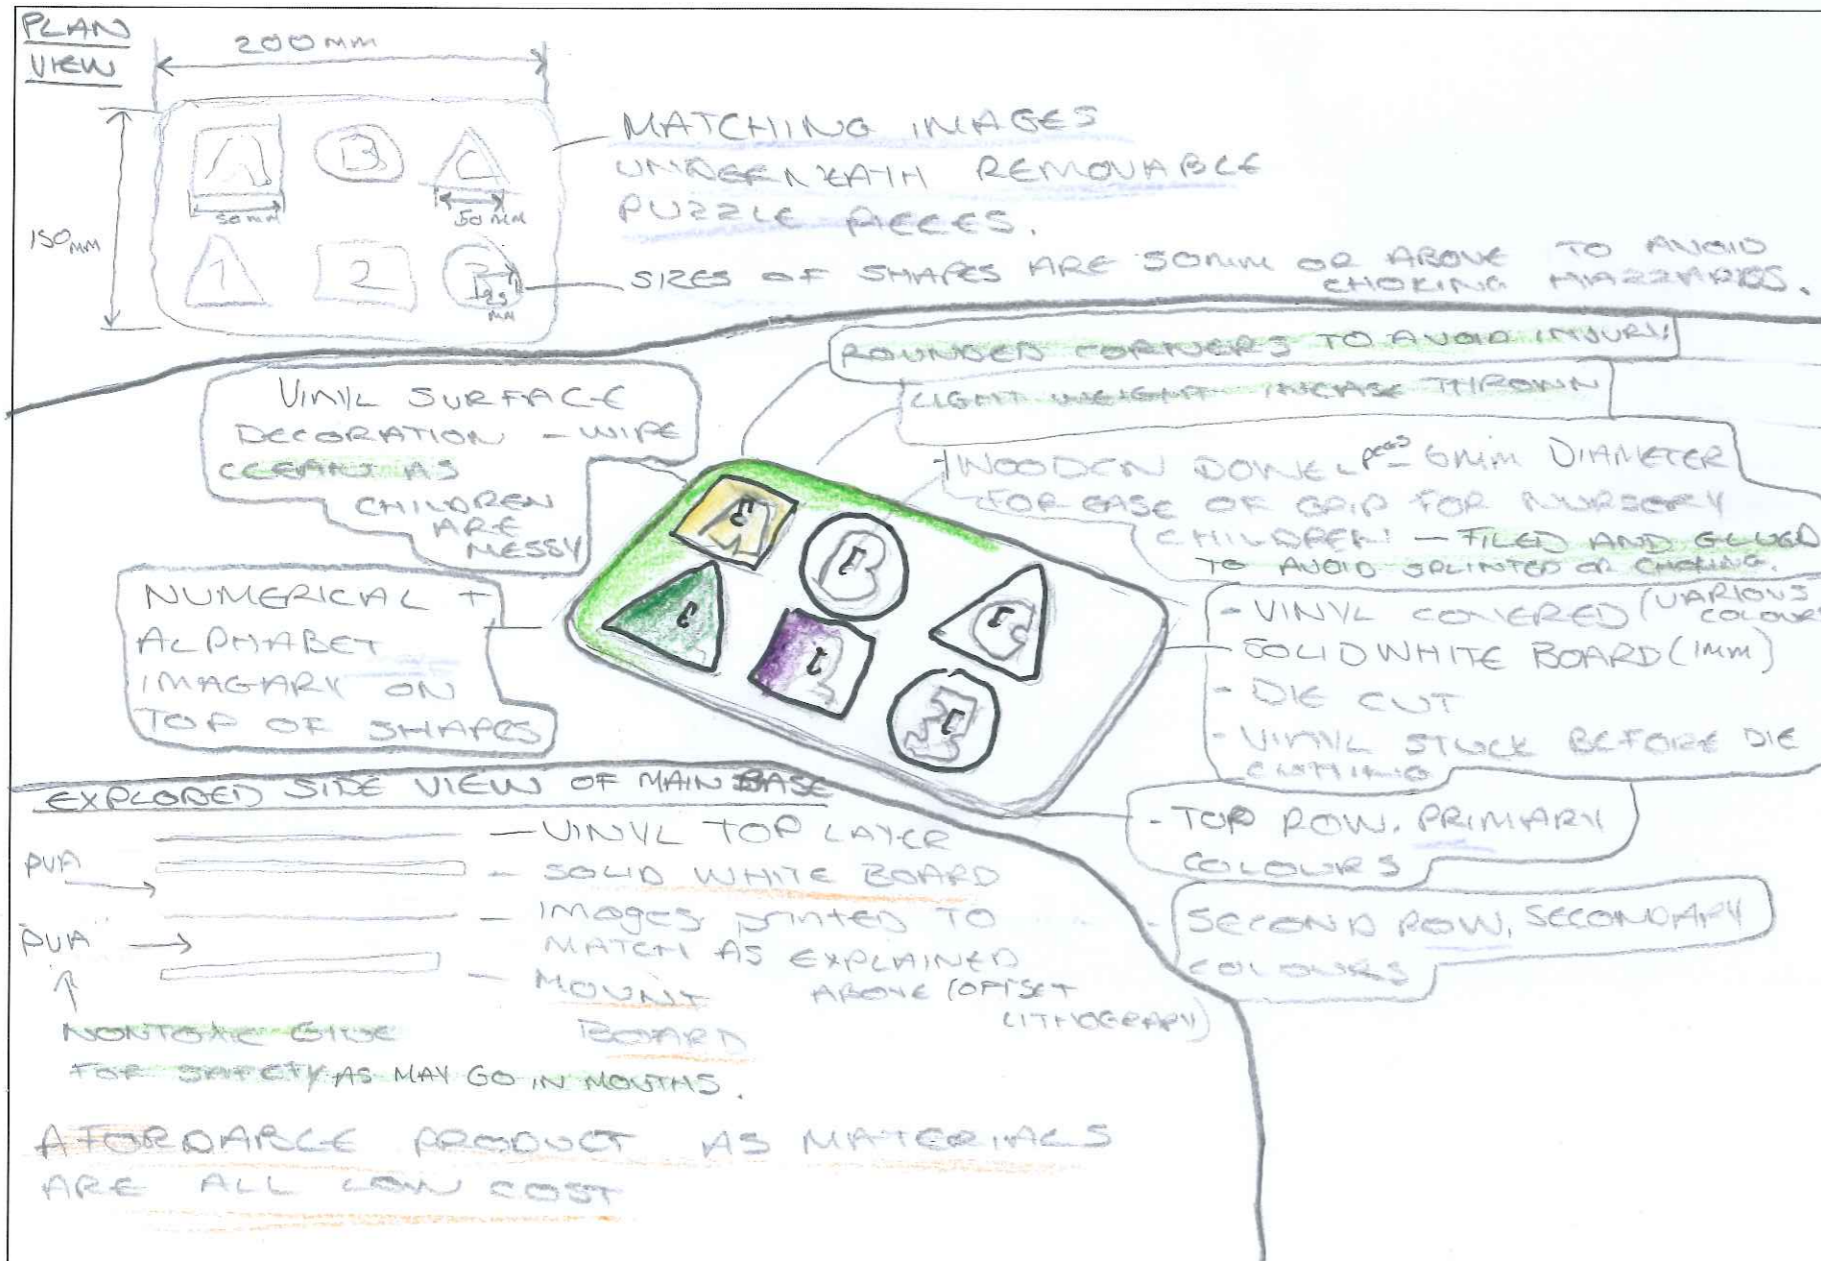 PLAN
VIEW
200mm
150mm
A
B
C
50mm
50mm
1
2
3
25
mm
MATCHING IMAGES
UNDERNEATH REMOVABLE
PUZZLE PIECES.
SIZES OF SHAPES ARE 50mm OR ABOVE TO AVOID
CHOKING HAZZARDS.
ROUNDED CORNERS TO AVOID INJURY.
LIGHT WEIGHT INCASE THROWN
VINYL SURFACE
DECORATION - WIPE
CLEAN AS
CHILDREN
ARE
MESSY
- WOODEN DOWEL PEGS - 6mm DIAMETER
FOR EASE OF GRIP FOR NURSERY
CHILDREN - FILED AND GLUED
TO AVOID SPLINTED OR CHOKING.
NUMERICAL +
ALPHABET
IMAGARY ON
TOP OF SHAPES
A
B
C
- VINYL COVERED (VARIOUS
COLOUR
- SOLID WHITE BOARD (1mm)
- DIE CUT
- VINYL STUCK BEFORE DIE
CUTTING
- TOP ROW. PRIMARY
COLOURS
- SECOND ROW, SECONDARY
COLOURS
EXPLODED SIDE VIEW OF MAIN BASE
PVA
- VINYL TOP LAYER
- SOLID WHITE BOARD
PVA
- IMAGES PRINTED TO
MATCH AS EXPLAINED
ABOVE (OFFSET
LITHOGRAPHY)
- MOUNT
BOARD
NONTOXIC GLUE
FOR SAFETY AS MAY GO IN MOUTHS.
AFORDABLE PRODUCT AS MATERIALS
ARE ALL LOW COST